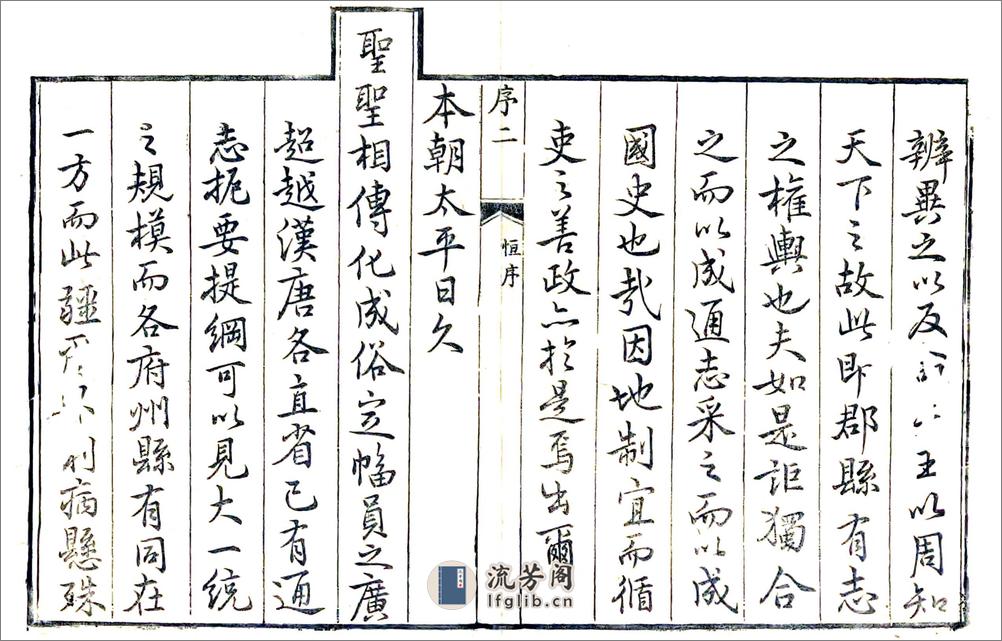 辨異之以反 王以周知
天下之故此即郡縣有志
之權輿也夫如是詎獨合
之而以成通志采之而以成
國史也哉因地制宜而循
吏之善政亦於是焉出爾
序二
恒序
本朝太平日久
聖聖相傳化成俗定幅員之廣
超越漢唐各直省已有通
志扼要提綱可以見大一統
之規模而各府州縣有同在
一方而此疆 利病懸殊
流芳阁
lfglib.cn